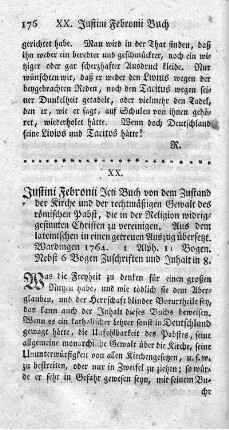 176 XX. Justini Febronii Buch
gerichtet habe. Man wird in der That finden, daß
ihn weder ein beredter und geschmückter, noch ein wi-
ziger oder gar scherzhafter Ausdruck kleide. Nur
wünschten wir, daß er weder den Livius wegen der
beygebrachten Reden, noch den Tacitus wegen sei-
ner Dunkelheit getadelt, oder vielmehr den Tadel,
den er, wie er sagt, auf Schulen von ihnen gehö-
ret, wiederholet hätte. Wenn doch Deutschland
seine Livios und Tacitos hätte!
R.
XX.
Justini Febronii Jcti Buch von dem Zustand
der Kirche und der rechtmäßigen Gewalt des
römischen Pabst, die in der Religion widrig-
gesinnten Christen zu vereinigen. Aus dem
lateinischen in einen getreuen Auszug übersetzt.
Wardingen 1764. 1 Alph. 1 Bogen.
Nebst 6 Bogen Zuschriften und Inhalt in 8.
Was die Freyheit zu denken für einen großen
Nutzen habe, und wie tödlich sie dem Aber-
glauben, und der Herrschaft blinder Vorurtheile sey,
das kann auch der Inhalt dieses Buchs beweisen.
Wenn es ein katholischer Lehrer sonst in Deutschland
gewagt hätte, die Unfehlbarkeit des Pabstes, seine
allgemeine monarchische Gewalt über die Kirche, seine
Ununterwürfigkeit von allen Kirchengesetzen, u. s. w.
zu bestreiten, oder nur in Zweifel zu ziehen; so wür-
de er sehr in Gefahr gewesen seyn, mit seinem Bu-
che